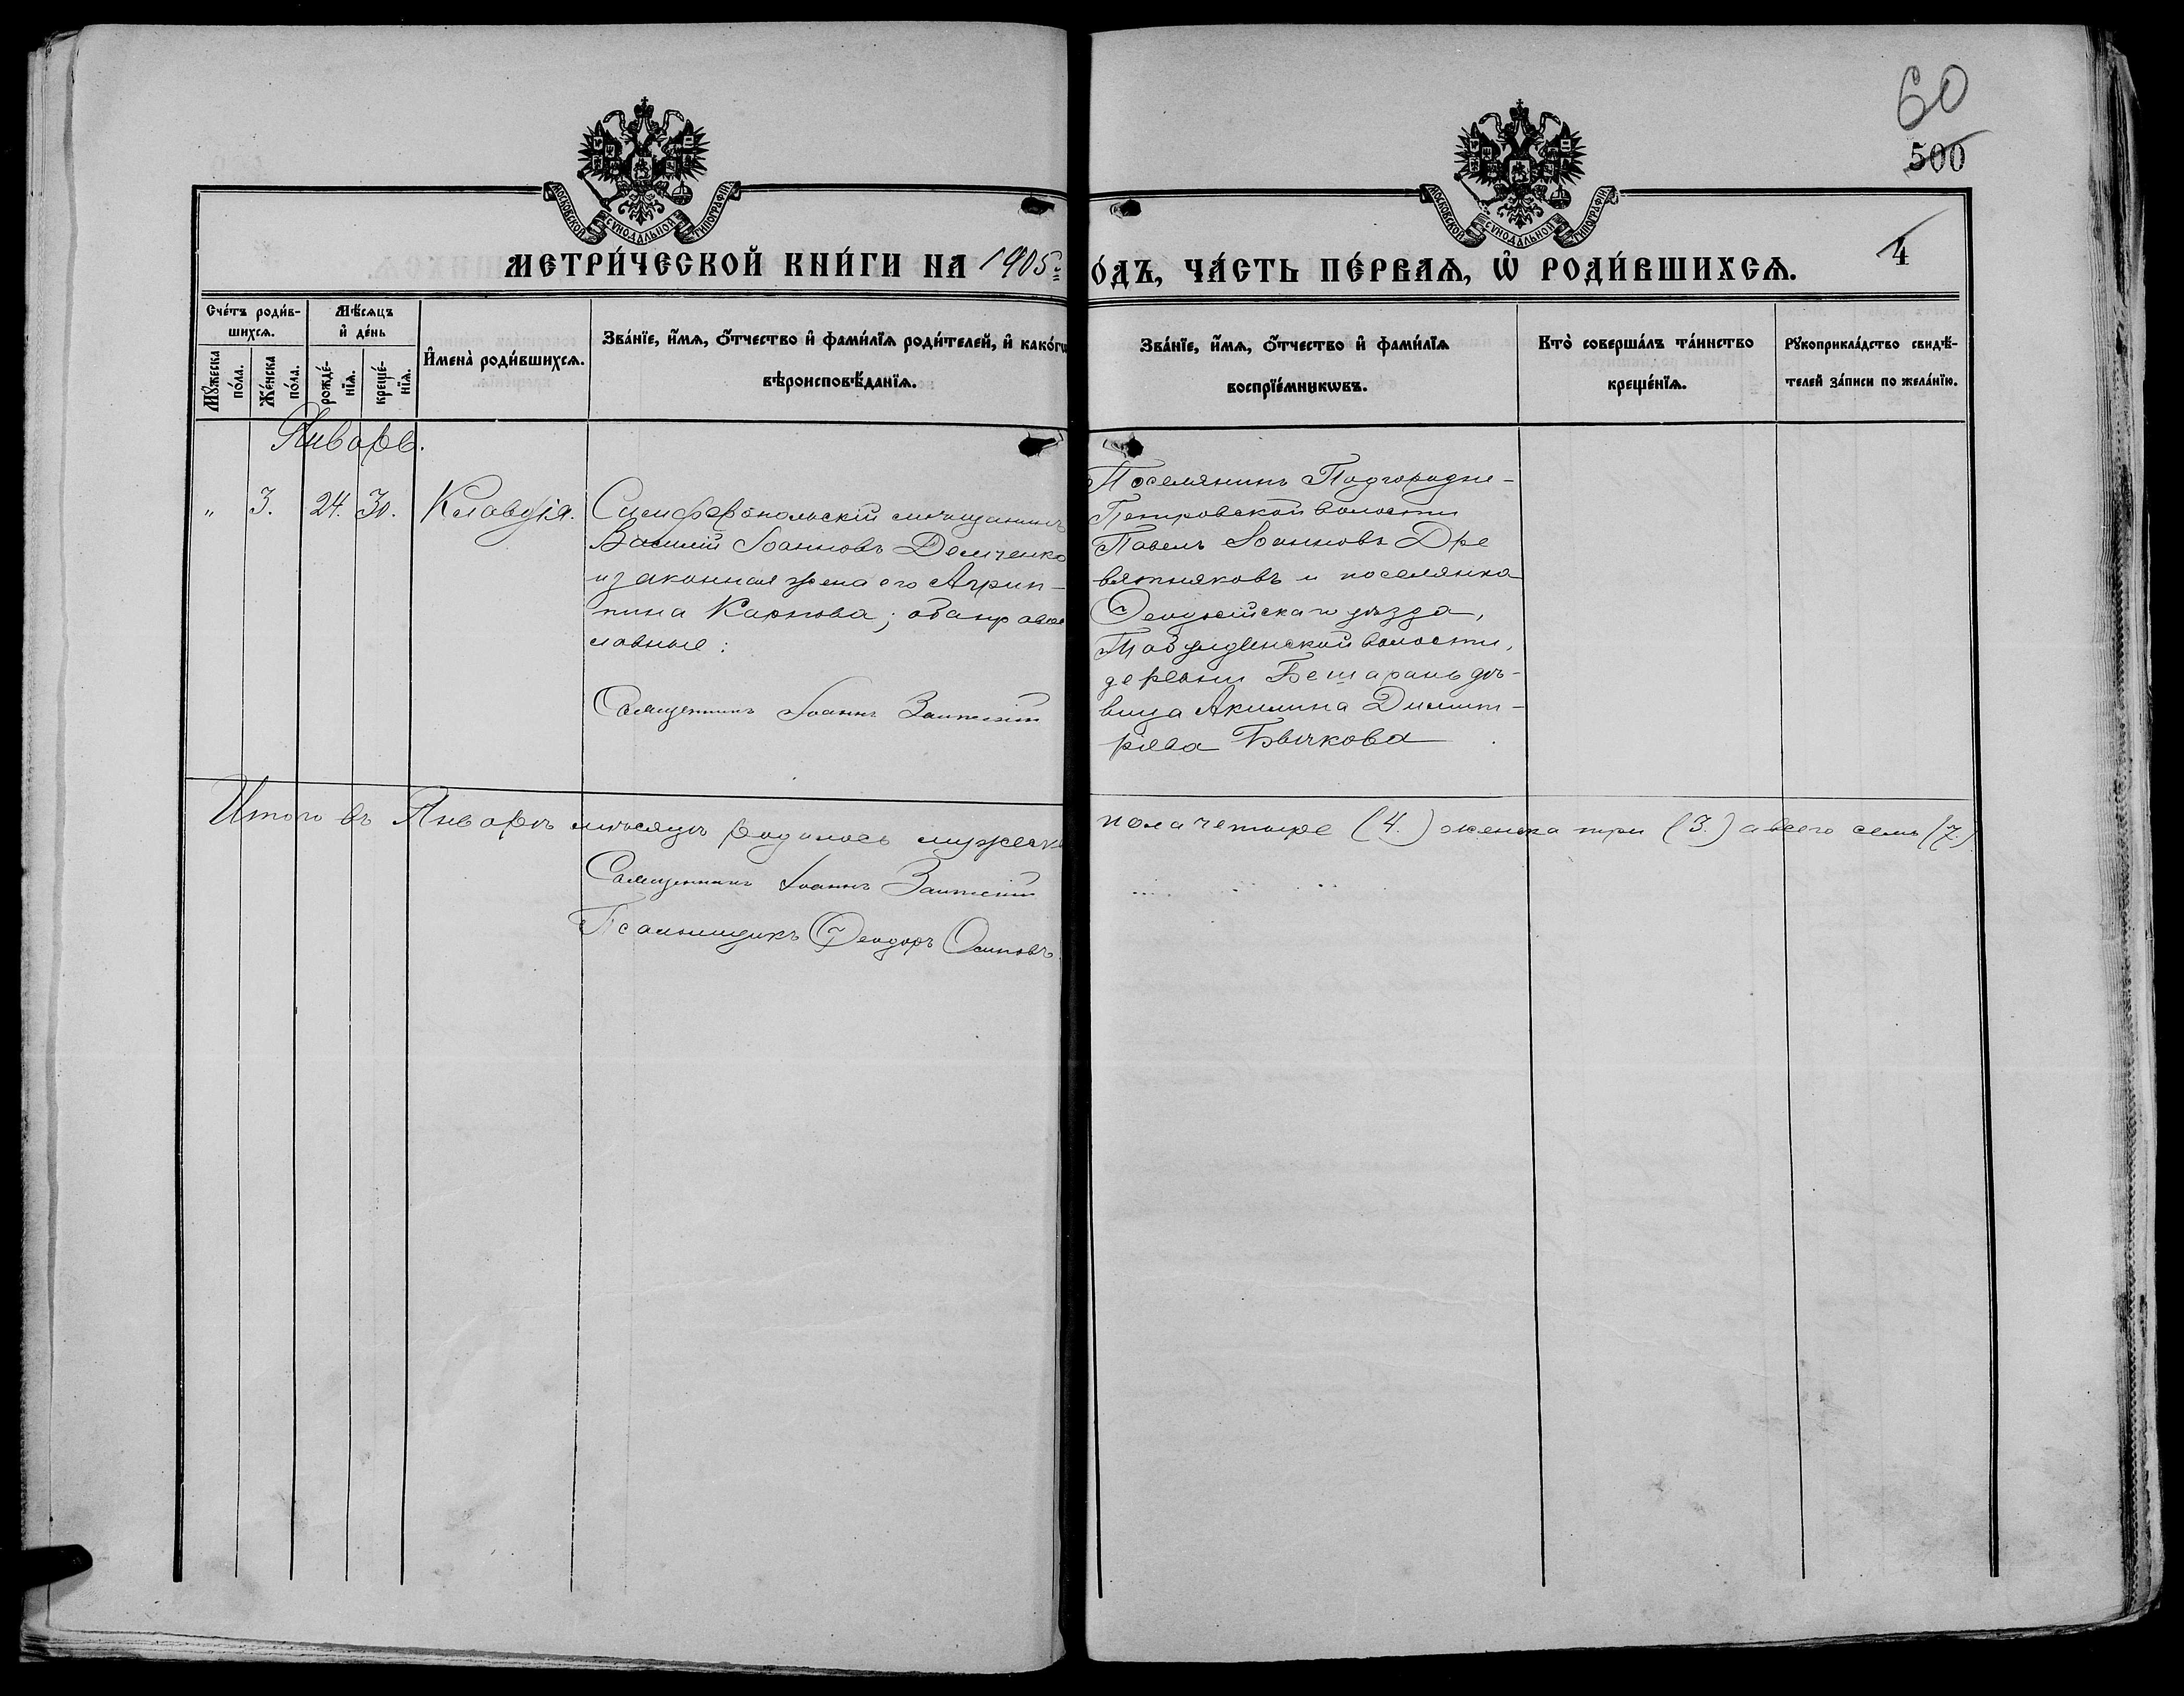 60
500
4
МОСКОВСКОЙ СѴНОДАЛЬНОЙ ТИПОГРАФІИ
МОСКОВСКОЙ СѴНОДАЛЬНОЙ ТИПОГРАФІИ
МЕТРИ́ЧЕСКОЙ КНИ́ГИ НА 1905
О́ДЪ, ЧА́СТЬ ПЕ́РВАѦ, Ѡ҆ РОДИ́ВШИХСѦ.
Сче́тъ роди́в-
шихсѧ.
Мѣ́сѧцъ
и҆ де́нь
Мꙋ́жеска
по́ла.
Же́нска
по́ла.
рожде́-
нїѧ.
креще́-
нїѧ.
И҆мена̀ роди́вшихсѧ.
Зва́нїе, и҆́мѧ, ѻ҆́тчество и҆ фами́лїѧ роди́телей, и҆ како́гѡ
вѣроисповѣ́данїѧ.
Зва́нїе, и҆́мѧ, ѻ҆́тчество и҆ фами́лїѧ
воспрїе́мникѡвъ.
Кто̀ соверша́лъ та́инство
креще́нїѧ.
Рꙋкоприкла́дство свидѣ́-
телей за́писи по жела́нїю.
Январь.
" 3. 24. 30. Клавдія.
Симферопольскій мѣщанинъ
Василій Іоанновъ Демченко
и законная жена его Агрип-
пина Карпова; оба право
славные:
Священникъ Іоаннъ
Поселянинъ Подгородне-
Петровской волости
Павелъ Іоанновъ Дре
вятняковъ и поселянка
Ѳеодосійскаго уѣзда,
волости,
деревни Бешарань дѣ-
вица Акилина Димит-
ріева Бычкова
Итого въ Январѣ мѣсяцѣ родилось мужеска
пола четыре (4.) женска три (3.) а всего семь (7.)
Священникъ Іоаннъ
Псаломщикъ Ѳеодоръ Осиповъ